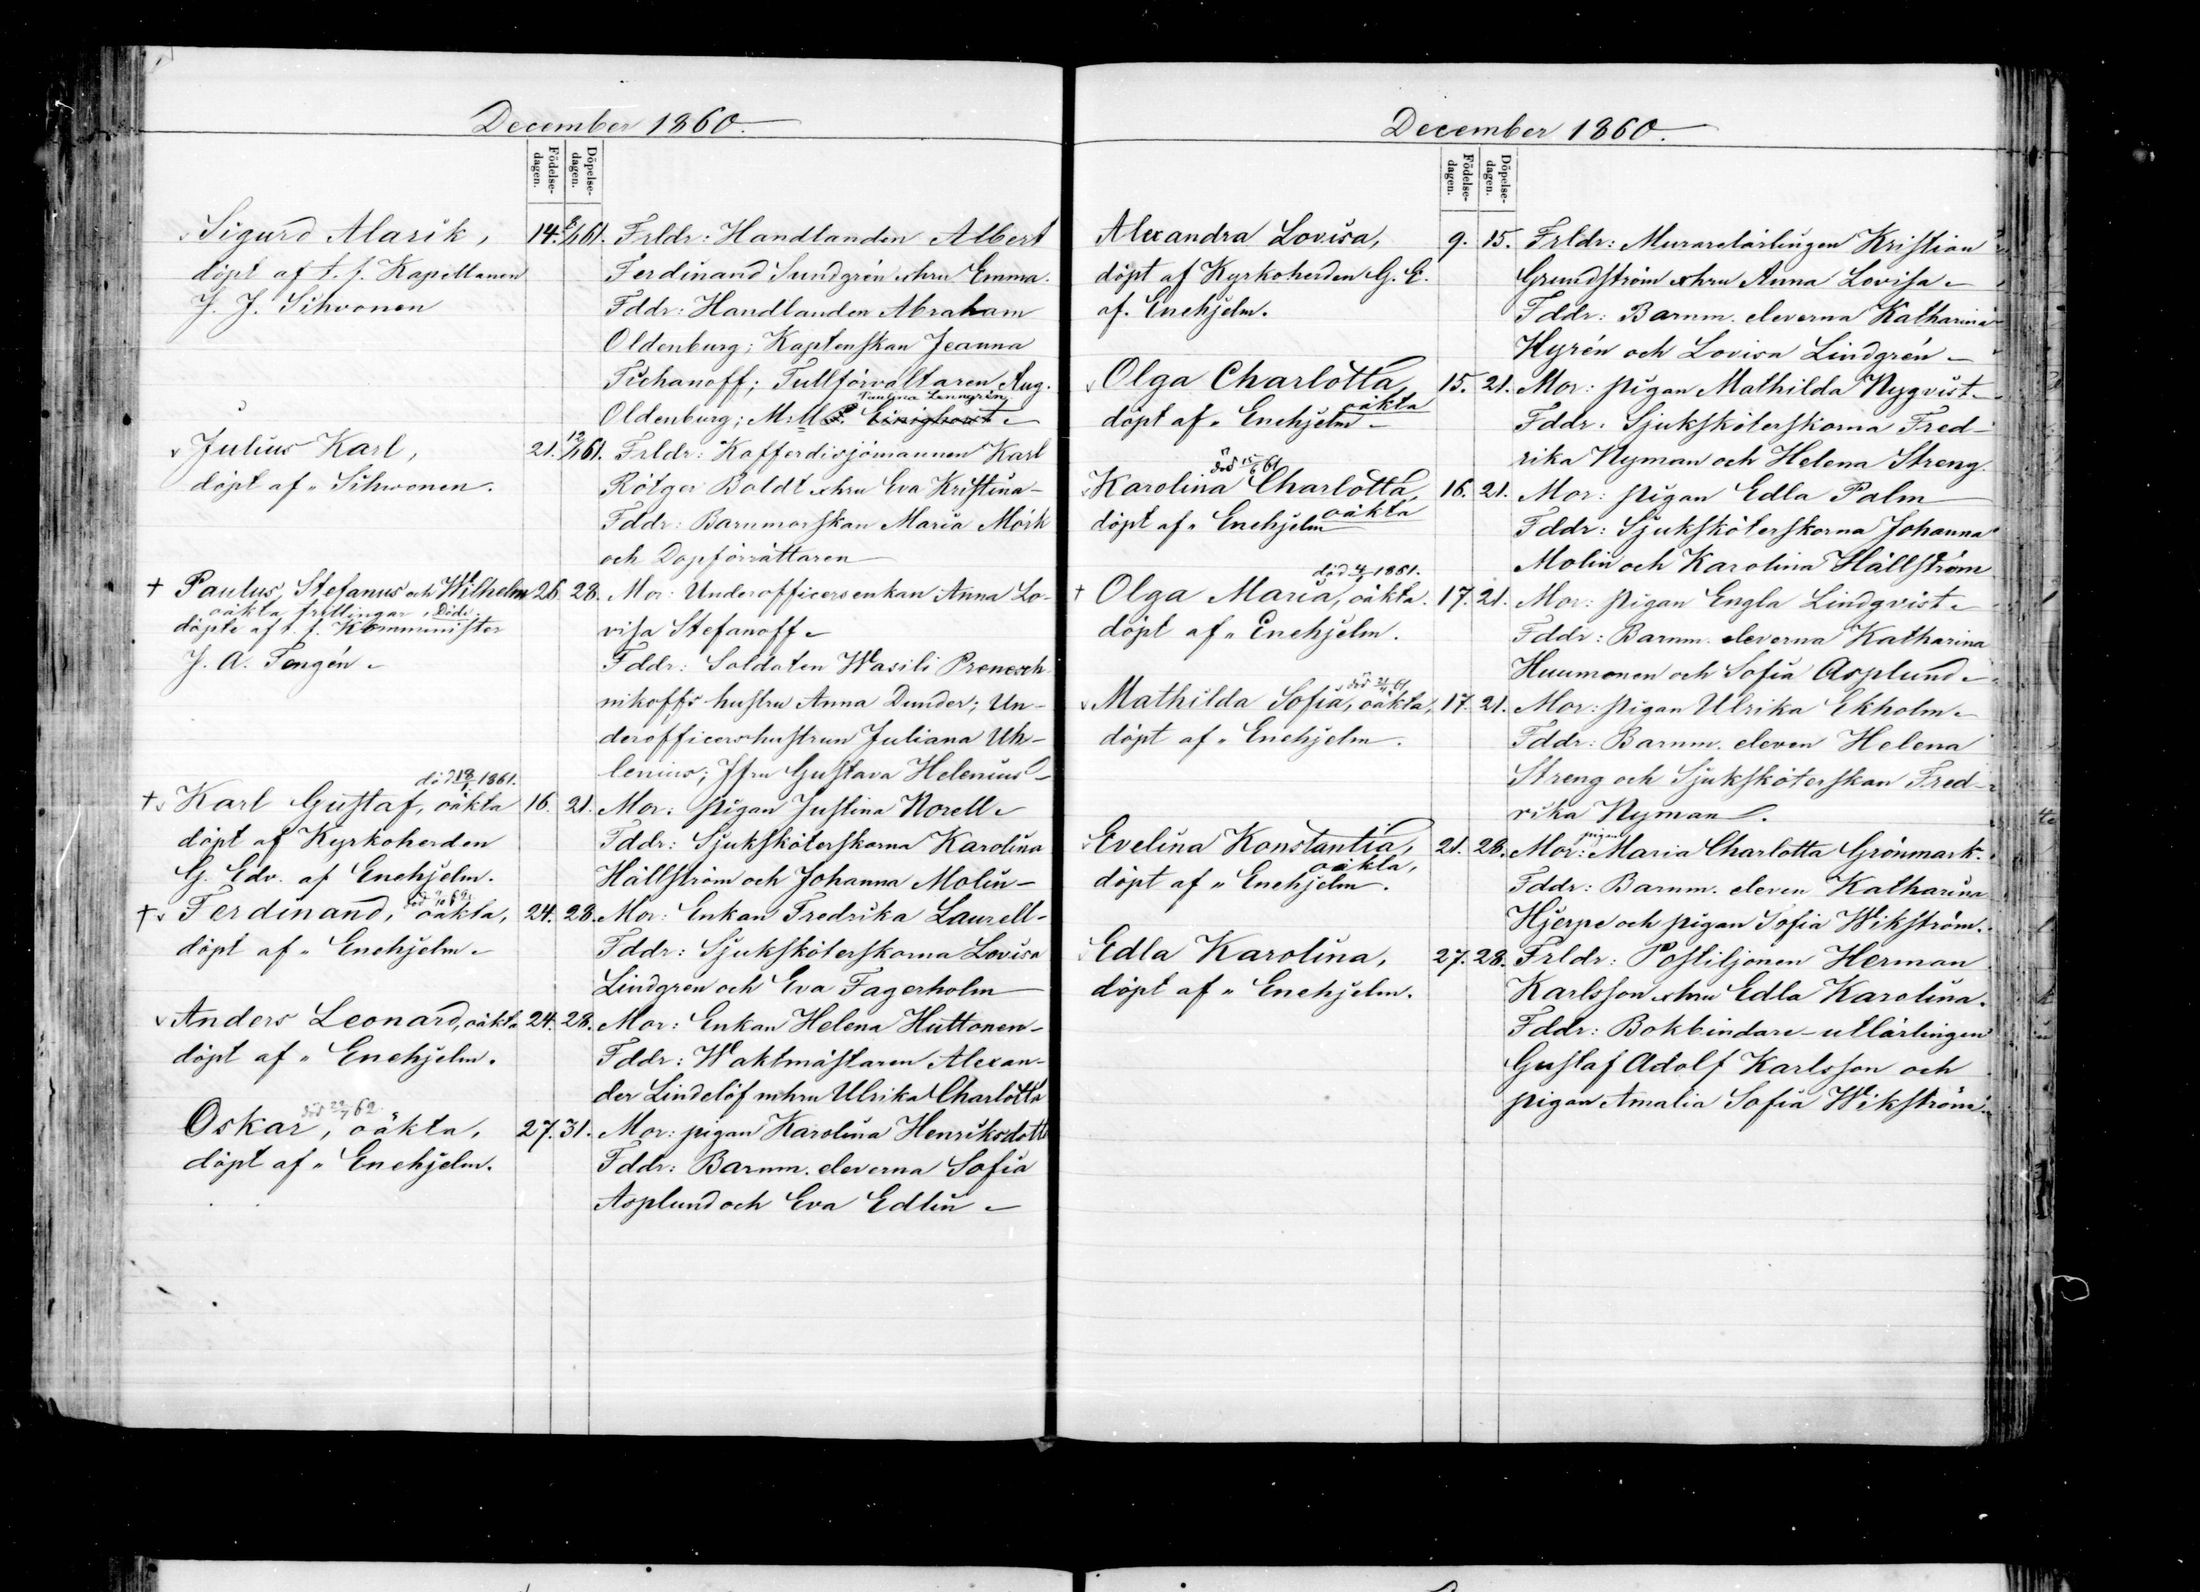 December 1860.
Födelse-dagen.
Döpelse-dagen.
Sigurd Alarik,
döpt af t. f. Kapellanen
J. J. Sihvonen
14. 8/1 61.
Frldr: Handlanden Albert
Ferdinand Sundgrén o hru Emma.
Fddr: Handlanden Abraham
Oldenburg; Kaptenskan Jeanna
Tichanoff; Tullförvaltaren Aug.
Paulina Lenngrén
Oldenburg; M:ll
Julius Karl,
döpt af „ Sihvonen.
21. 12/1 61.
Frldr: Kofferdisjömannen Karl
Rötger Boldt o hru Eva Kristina
Fddr: Barnmorskan Maria Mörk
och Dopförrättaren
† Paulus, Stefanus och Wilhelm
oäkta trillingar. Döde.
döpte af t. f. Komminister
J. A. Tengén
26 28.
Mor: Underofficersenkan Anna Lo-
visa Stefanoff
Fddr: Soldaten Wasili Prenesch
nikoffs hustru Anna Dunder; Un-
derofficershustrun Juliana Uh-
lenius; Jfru Gustava Helenius
död 18/1 1861.
† Karl Gustaf, oäkta
döpt af Kyrkoherden
G. Edv. af Enehjelm.
16. 21.
Mor: pigan Justina Norell
Fddr: Sjuksköterskorna Karolina
Hällström och Johanna Molin
† Ferdinand, oäkta,
döpt af „ Enehjelm
24. 28.
Mor: Enkan Fredrika Laurell
Fddr: Sjuksköterskorna Lovisa
Lindgren och Eva Fagerholm
Anders Leonard, oäkta
döpt af „ Enehjelm.
24. 28.
Mor: Enkan Helena Huttonen
Fddr: Waktmästaren Alexan-
der Lindelöf m hru Ulrika Charlotta
död 22/7 62
Oskar, oäkta,
döpt af „ Enehjelm.
27. 31.
Mor: pigan Karolina Henriksdott
Fddr: Barnm. eleverna Sofia
Asplund och Eva Edlin
December 1860.
Födelse-dagen.
Döpelse-dagen.
Alexandra Lovisa,
döpt af Kyrkoherden G. E.
af. Enehjelm.
9. 15.
Frldr: Murarelärlingen Kristian
Grundström o hru Anna Lovisa
Fddr: Barnm. eleverna Katharina
Hyrén och Lovisa Lindgrén
Olga Charlotta,
oäkta
döpt af „ Enehjelm
15. 21.
Mor: pigan Mathilda Nyqvist
Fddr: Sjuksköterskorna Fred-
rika Nyman och Helena Streng.
död 15/6 61
Karolina Charlotta,
oäkta
döpt af „ Enehjelm
16. 21.
Mor: pigan Edla Palm
Fddr: Sjuksköterskorna Johanna
Molin och Karolina Hällström
död 4/1 1861.
† Olga Maria, oäkta.
döpt af „ Enehjelm.
17. 21.
Mor: pigan Engla Lindqvist
Fddr: Barnm. eleverna Katharina
Huumonen och Sofia Asplund
Mathilda Sofia, oäkta,
döpt af „ Enehjelm.
17. 21.
Mor: pigan Ulrika Ekholm
Fddr: Barnm. eleven Helena
Streng och Sjuksköterskan Fred-
rika Nyman.
Evelina Konstantia,
oäkta,
döpt af „ Enehjelm.
21. 28.
Mor: pigan Maria Charlotta Grönmark.
Fddr: Barnm. eleven Katharina
Hjerpe och pigan Sofia Wikström.
Edla Karolina,
döpt af „ Enehjelm.
27. 28.
Frldr: Postiljonen Herman
Karlsson o hru Edla Karolina.
Fddr: Bokbindare-utlärlingen
Gustaf Adolf Karlsson och
pigan Amalia Sofia Wikström.